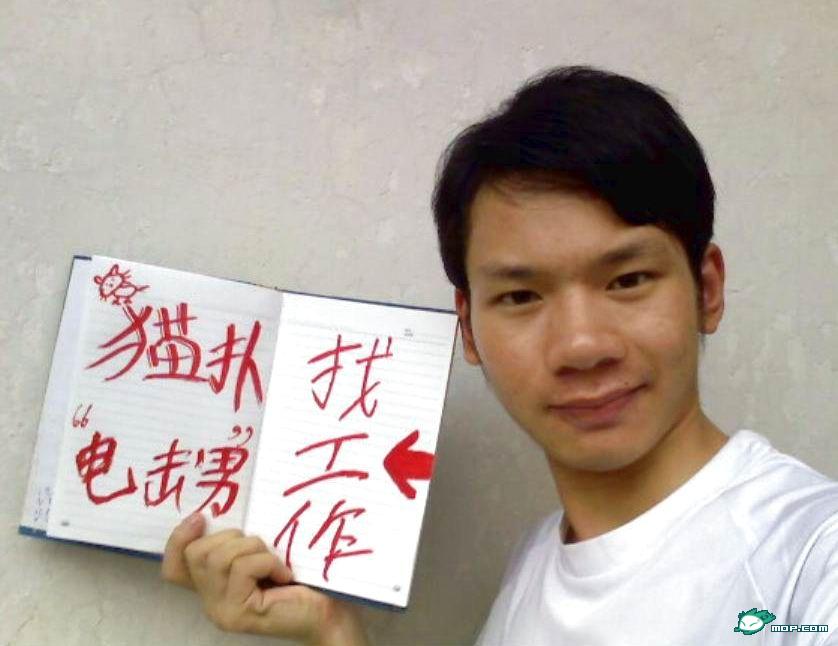 猫扑
“电击勇”
找
工
作
mop.com